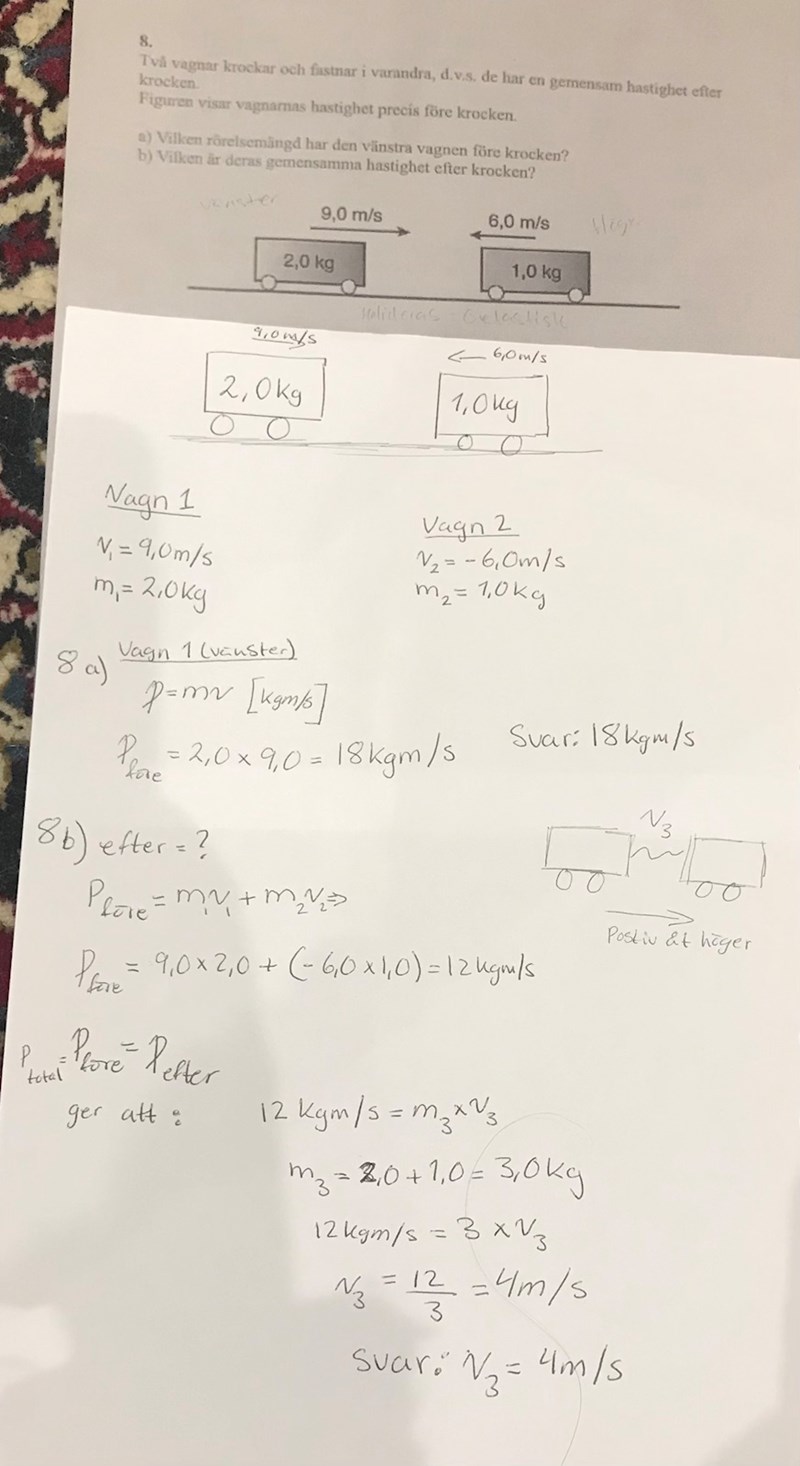 8.
Två vagnar krockar och fastnar i varandra, d.v.s. de har en gemensam hastighet efter
krocken.
Figuren visar vagnarnas hastighet precis före krocken.
a) Vilken rörelsemängd har den vänstra vagnen före krocken?
b) Vilken är deras gemensamma hastighet efter krocken?
vänster
9,0 m/s
6,0 m/s
2,0 kg
1,0 kg
9,0 m/s
← 6,0 m/s
2,0kg
1,0kg
Vagn 1
V₁ = 9,0m/s
m₁ = 2,0kg
Vagn 2
V₂ = -6,0m/s
m₂ = 1,0kg
8a) Vagn 1 (vänster)
p=mv [kgm/s]
P före = 2,0 × 9,0 = 18kgm/s
Svar: 18kgm/s
8b) efter = ?
V₃
P före = m₁v₁ + m₂v₂ ⇒
Postiv åt höger
P före = 9,0×2,0 + (-6,0×1,0) = 12kgm/s
P total = P före = P efter
ger att: 12 kgm/s = m₃×V₃
m₃ = 2,0 + 1,0 = 3,0kg
12kgm/s = 3 × V₃
V₃ = 12/3 = 4m/s
Svar: V₃ = 4m/s